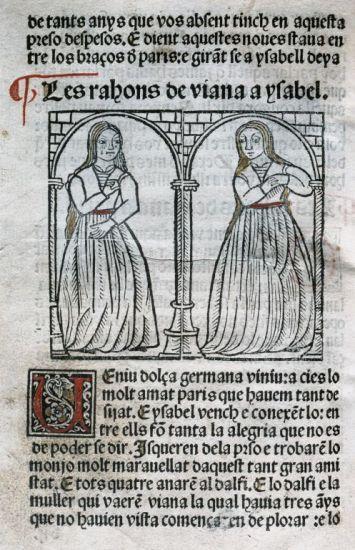 de tants anys que vos absent tinch en aquesta
preso despesos. E dient aquestes noues staua en
tre los braços ð paris: e girãt se a ysabell deya
¶ Les rahons de viana a ysabel.
UEniu dolça germana viniu: a cies lo
molt amat paris que hauem tant de
sijat. E ysabel vench e conexẽt lo: en
tre ells fõ tanta la alegria que no es
de poder se dir. Jsqueren dela prso e trobarẽ lo
monjo molt marauellat daquest tant gran ami
stat. E tots quatre anarẽ al dalfi. E lo dalfi e la
muller qui vaerẽ viana la qual hauia tres ãys
que no hauien vista començaren de plorar: e lo